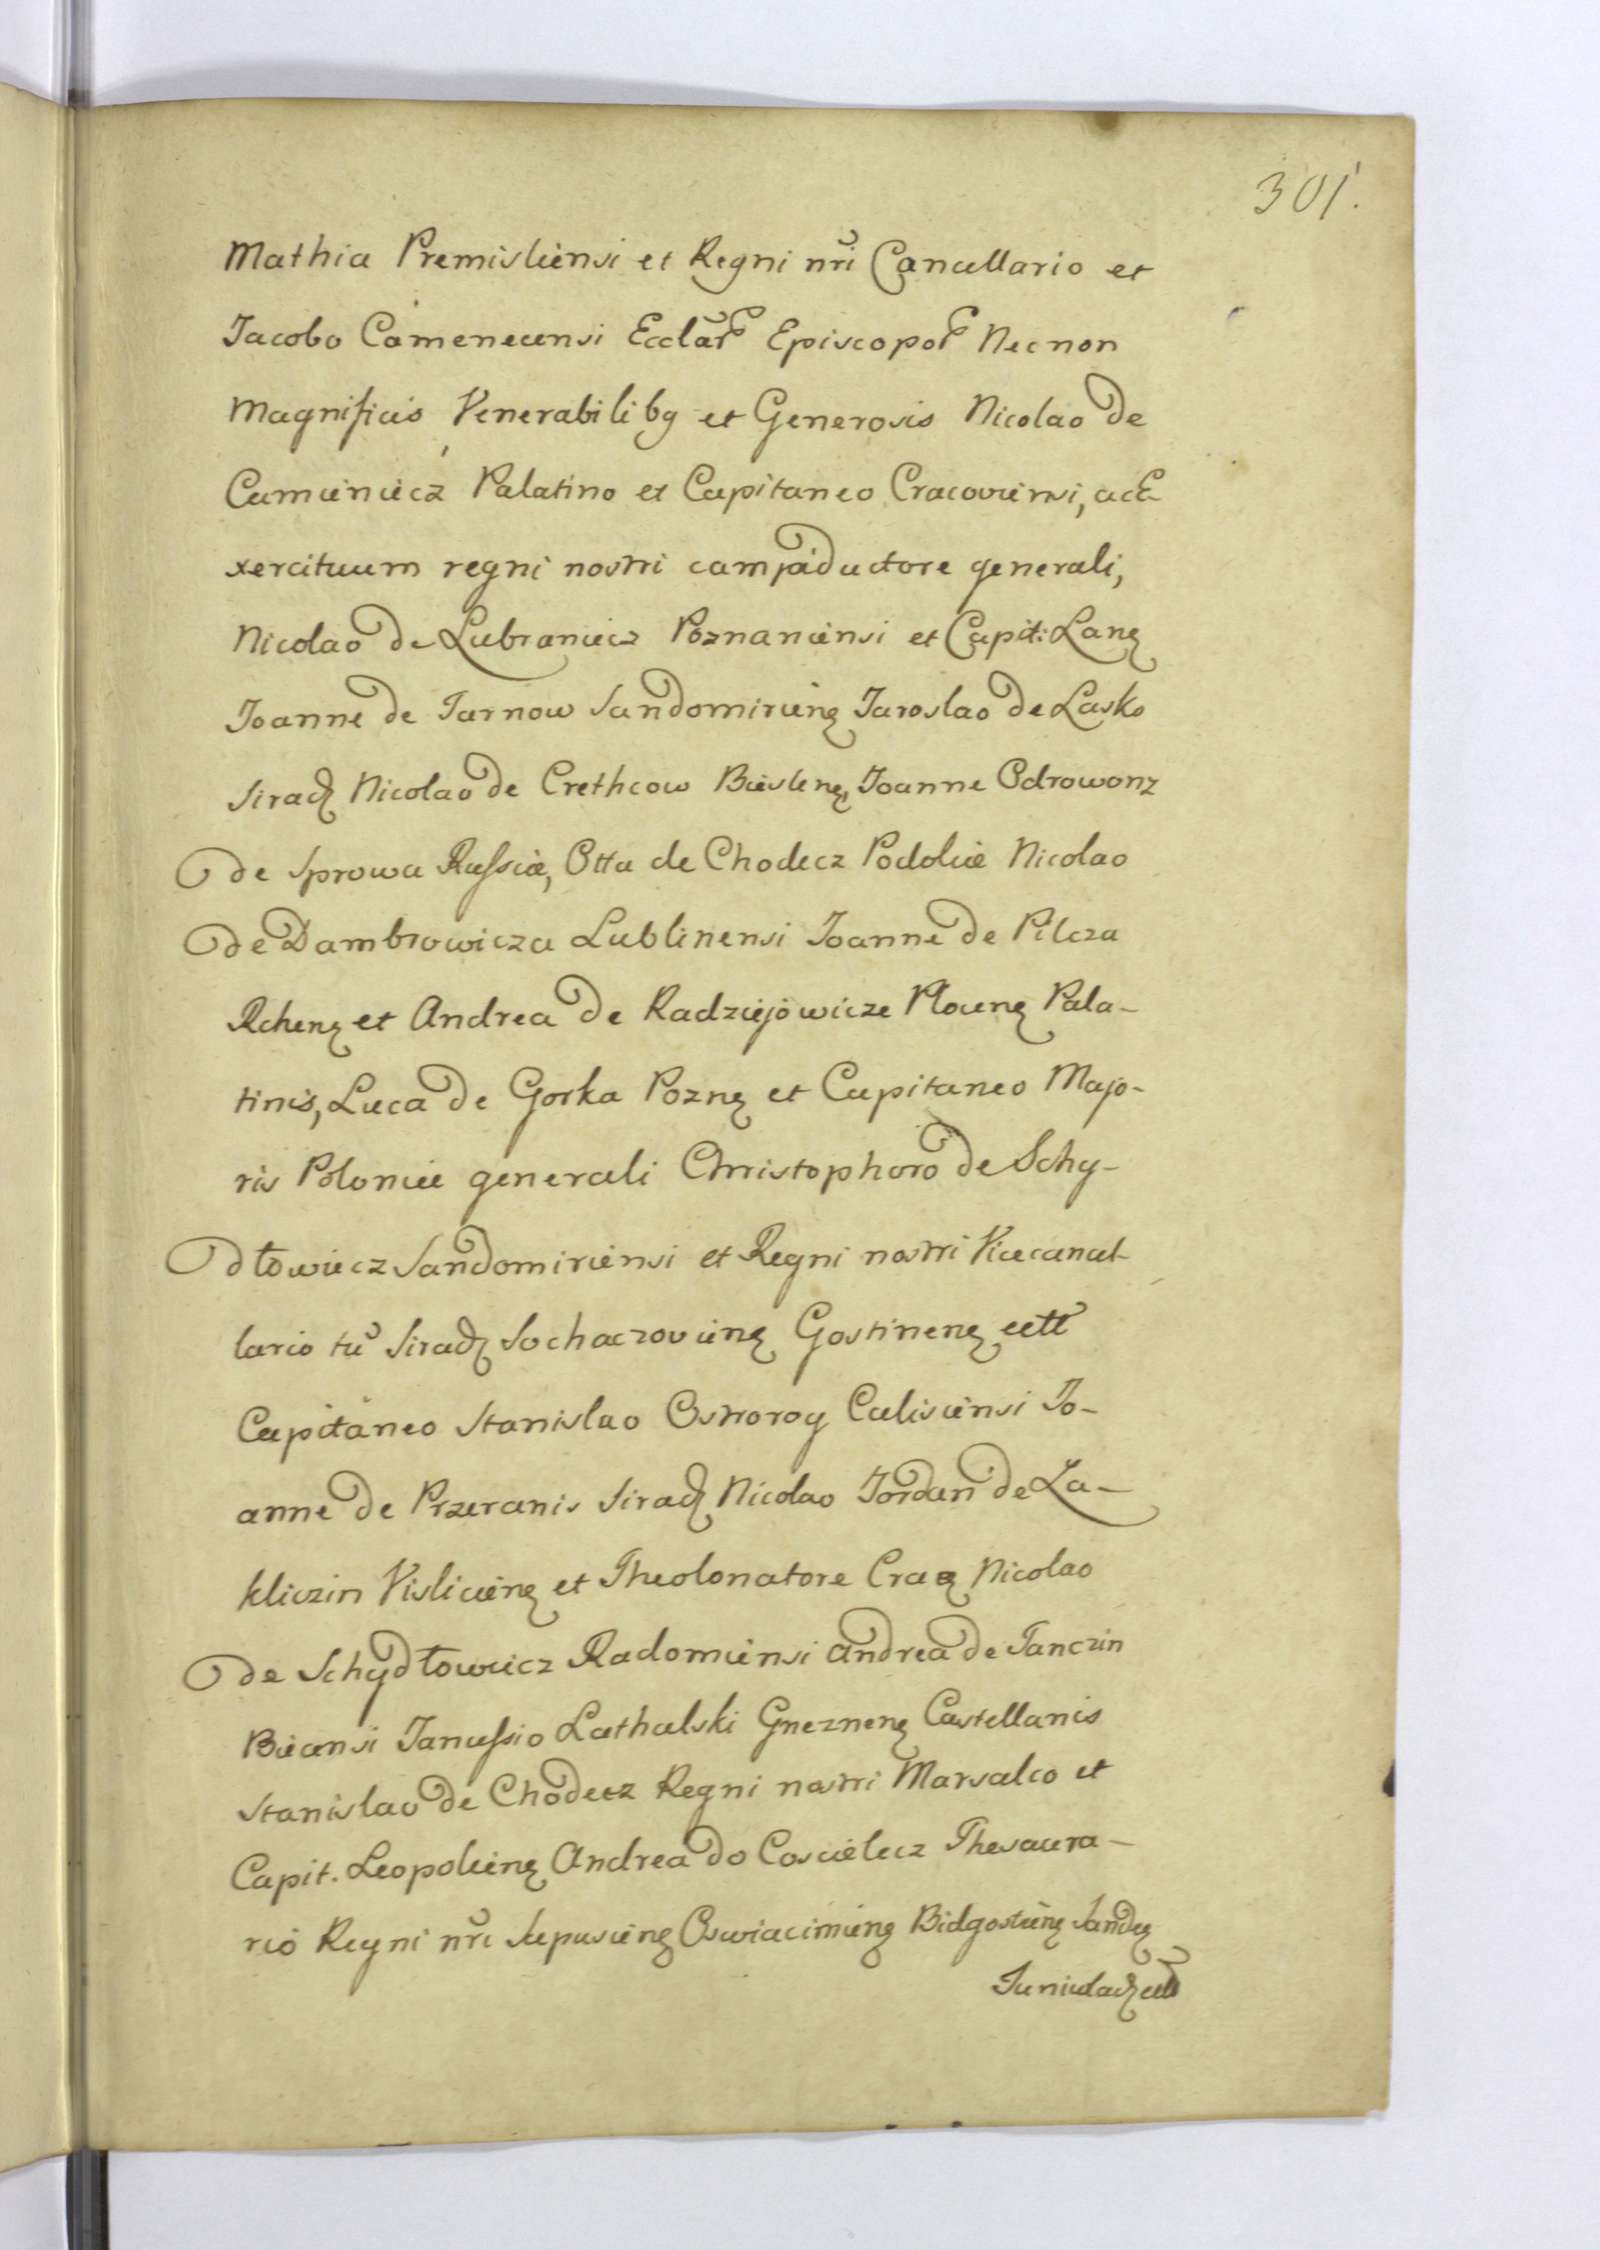 301.
Mathia Premisliensi et Regni nr̃i Cancellario et
Jacobo Camenecensi Ecclar̃ Episcopor̃ Necnon
Magnificis Venerabilibꝯ et Generosis Nicolao de
Camieniecz Palatino et Capitaneo Cracoviensi, ac E-
xercituum regni nostri campiductore generali,
Nicolao de Lubraniecz Poznaniensi et Capit: Lanȩ
Joanne de Tarnow Sandomirienȩ Jaroslao de Lasko
Siradȩ Nicolao de Crethcow Brestenȩ, Joanne Odrowonz
de Sprowa Russiæ, Otta de Chodecz Podoliæ Nicolao
de Dambrowicza Lublinensi Joanne de Pilcza
Rchenȩ et Andrea de Radziejowicze Plocenȩ Pala-
tinis, Luca de Gorka Poznȩ et Capitaneo Majo-
ris Poloniæ generali Christophoro de Schy-
dłowiecz Sandomiriensi et Regni nostri Vicecancel-
lario tũ Siradȩ Sochaczovienȩ Gostinenȩ ectt
Capitaneo Stanislao Ostrorog Calisiensi Jo-
anne de Przeranis Siradȩ Nicolao Jordan de Za-
kliczin Vislicienȩ et Theolonatore Cracȩ Nicolao
de Schydłowiecz Radomiensi Andrea de Tanczin
Biecensi Janussio Lathalski Gneznenȩ Castellanis
Stanislao de Chodecz Regni nostri Marsalco et
Capit. Leopolienȩ Andrea do Coscielecz Thesaura-
rio Regni nr̃i Scepusienȩ Oswiacimienȩ Bidgostienȩ Sandȩ
Juniuladȩ ectt